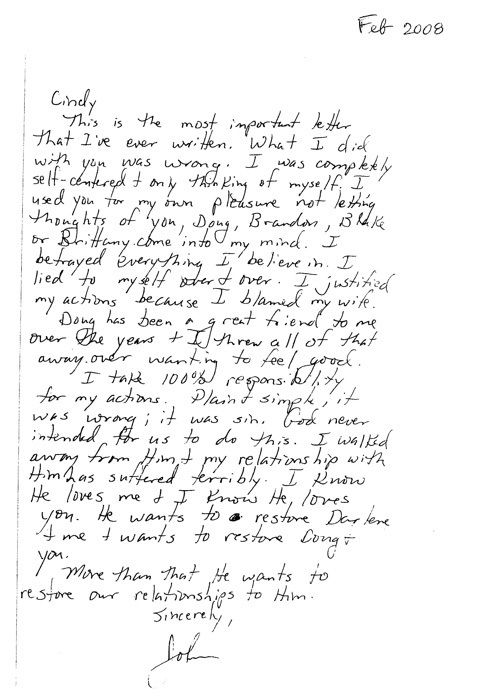 Feb 2008
Cindy
This is the most important letter
that I've ever written. What I did
with you was wrong. I was completely
self-centered + only thinking of myself. I
used you for my own pleasure not letting
thoughts of you, Doug, Brandon, Blake
or Brittany come into my mind. I
betrayed everything I believe in. I
lied to myself over + over. I justified
my actions because I blamed my wife.
Doug has been a great friend to me
over the years + I threw all of that
away over wanting to feel good.
I take 100% responsibility
for my actions. Plain + simple, it
was wrong; it was sin. God never
intended for us to do this. I walked
away from Him + my relationship with
Him has suffered terribly. I know
He loves me + I know He, loves
you. He wants to restore Darlene
+ me + wants to restore Doug +
you.
More than that He wants to
restore our relationships to Him.
Sincerely,
John